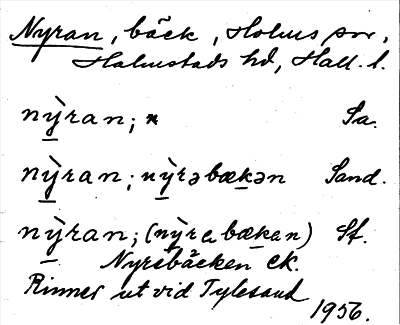 Nyran, bäck, Holms sn,
Halmstads hd, Hall. l.
nỳran; Sa.
nỳran; nỳrəbækən Sand.
nỳran; (nỳrabækan) St.
Nyrebäcken ek.
Rinner ut vid Tylesand
1956.